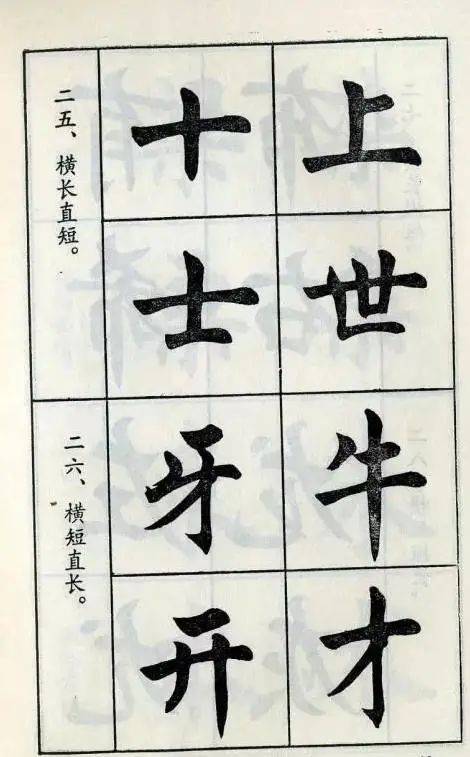 二五、横长直短。
上
世
十
士
二六、横短直长。
牛
才
牙
开